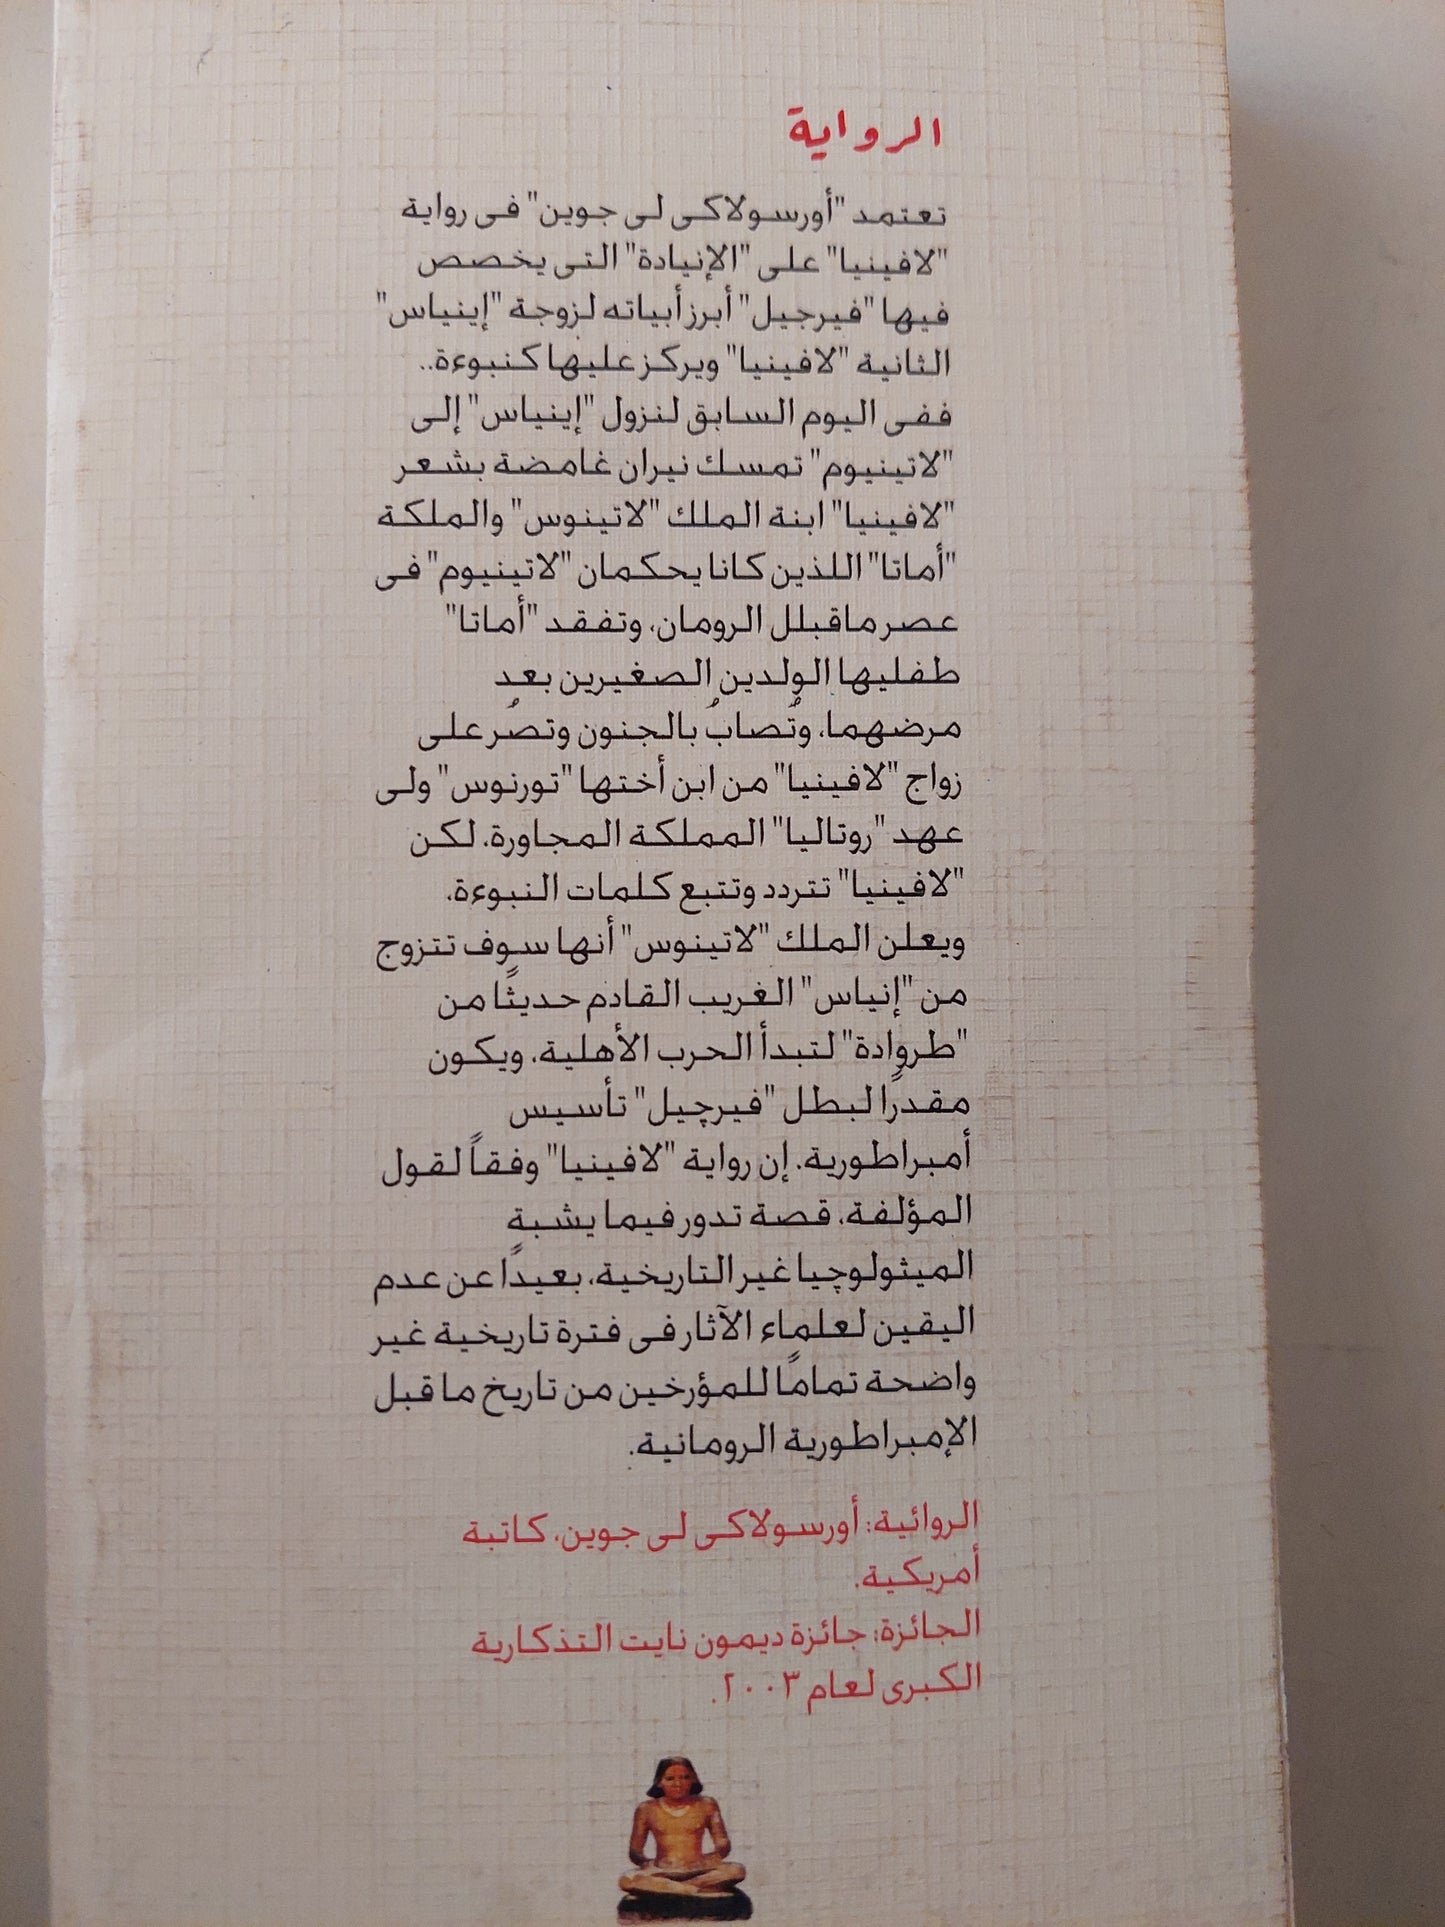 الرواية
تعتمد "أورسولاكى لى جوين" فى رواية
"لافينيا" على "الإنيادة" التى يخصص
فيها "فيرجيل" أبرز أبياته لزوجة "إينياس"
الثانية "لافينيا" ويركز عليها كنبوءة..
ففى اليوم السابق لنزول "إينياس" إلى
"لاتينيوم" تمسك نيران غامضة بشعر
"لافينيا" ابنة الملك "لاتينوس" والملكة
"أماتا" اللذين كانا يحكمان "لاتينيوم" فى
عصر ماقبلل الرومان، وتفقد "أماتا"
طفليها الولدين الصغيرين بعد
مرضهما، وتُصابُ بالجنون وتصُر على
زواج "لافينيا" من ابن أختها "تورنوس" ولى
عهد "روتاليا" المملكة المجاورة، لكن
"لافينيا" تتردد وتتبع كلمات النبوءة،
ويعلن الملك "لاتينوس" أنها سوف تتزوج
من "إنياس" الغريب القادم حديثًا من
"طروادة" لتبدأ الحرب الأهلية، ويكون
مقدرًا لبطل "فيرچيل" تأسيس
أمبراطورية. إن رواية "لافينيا" وفقاً لقول
المؤلفة، قصة تدور فيما يشبة
الميثولوچيا غير التاريخية، بعيدًا عن عدم
اليقين لعلماء الآثار فى فترة تاريخية غير
واضحة تمامًا للمؤرخين من تاريخ ما قبل
الإمبراطورية الرومانية.
الروائية: أورسولاكى لى جوين، كاتبة
أمريكية.
الجائزة: جائزة ديمون نايت التذكارية
الكبرى لعام ٢٠٠٣.